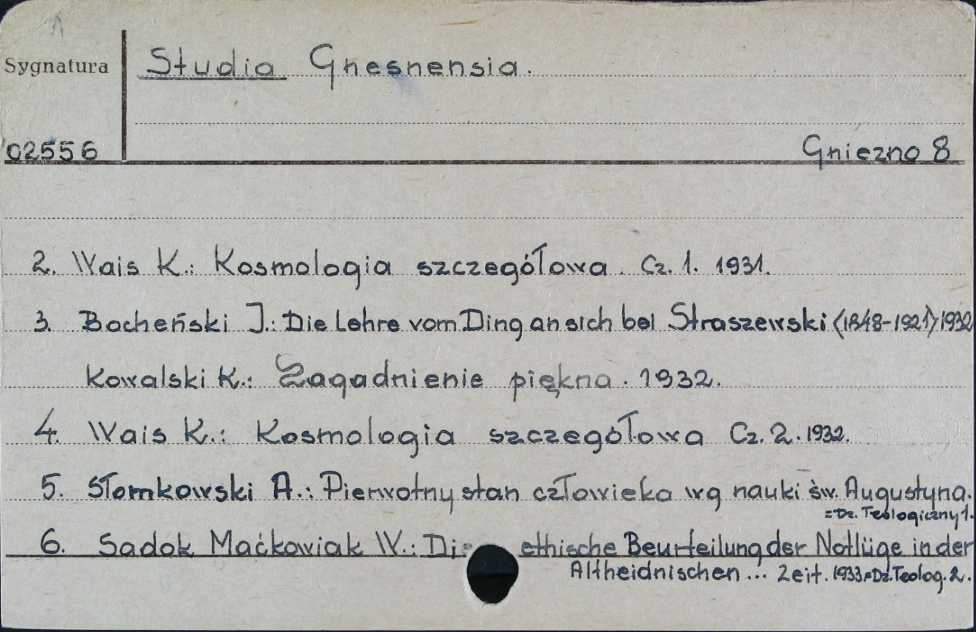 Sygnatura
Studia Gnesnensia.
02556
Gniezno 8
2. Wais K.: Kosmologia szczegółowa. Cz. 1. 1931.
3. Bocheński J.: Die Lehre vom Ding an sich bei Straszewski (1848-1921) 1932
Kowalski K.: Zagadnienie piękna. 1932.
4. Wais K.: Kosmologia szczegółowa Cz. 2. 1932.
5. Słomkowski A.: Pierwotny stan człowieka wg nauki św. Augustyna.
=Dz. Teologiczny 1.
6. Sadok Maćkowiak W.: Die ethische Beurteilung der Notlüge in der
Altheidnischen... Zeit. 1933.=Dz. Teolog. 2.